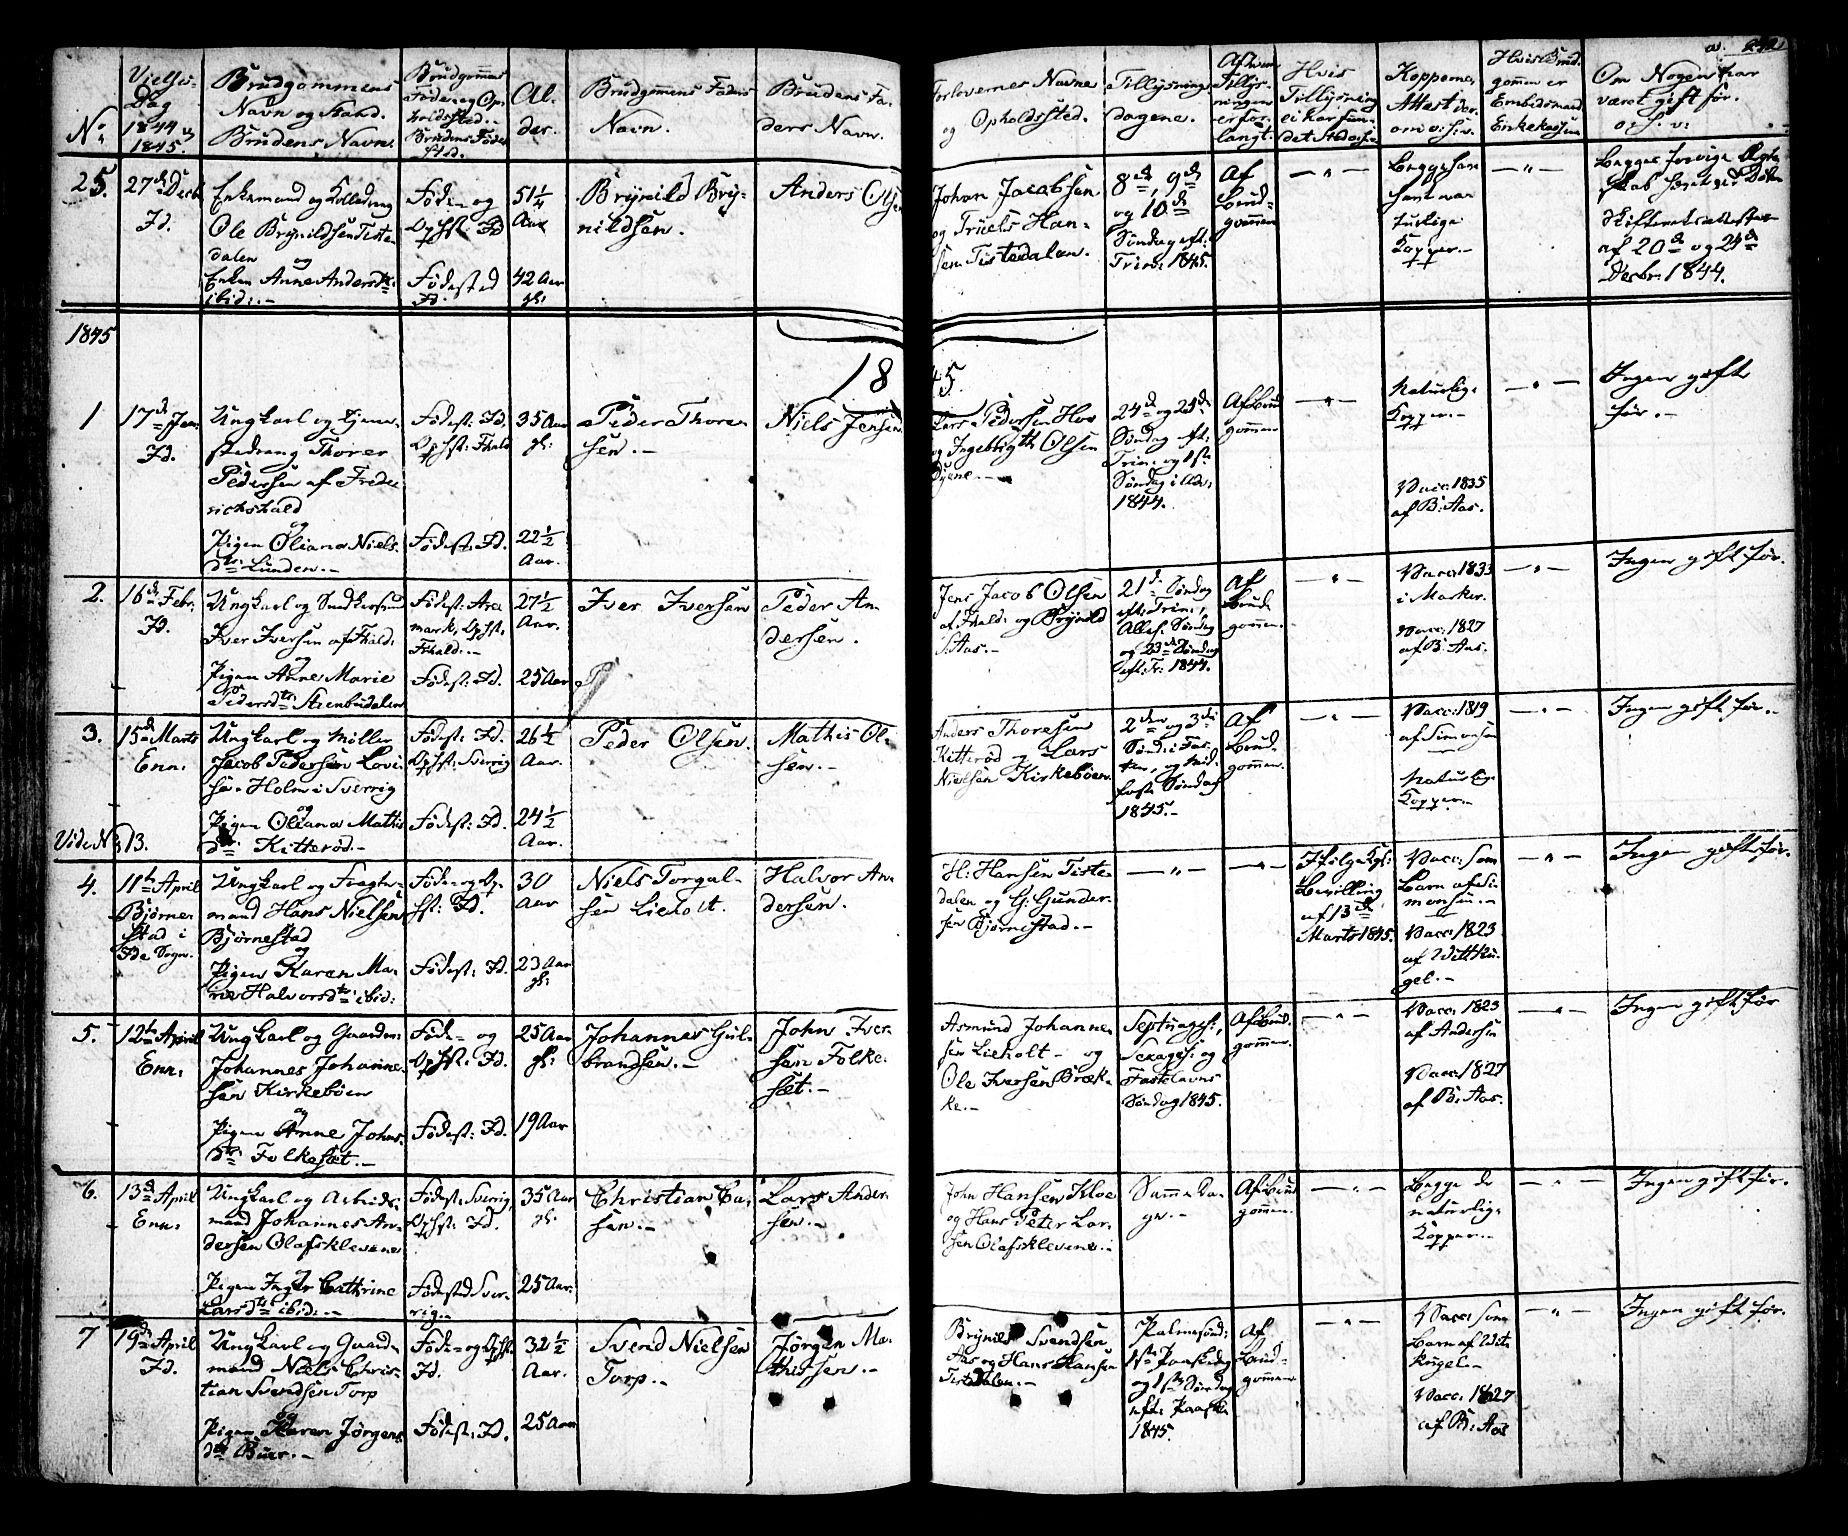 No:
Vielses-
Dag
1844 og
1845.
Brudgommens
Navn og Stand.
Brudens Navn.
Brudgommens
Føde- og Op-
holdssted.
Brudens Føde-
sted.
Al-
der.
Brudgommens Faders
Navn.
Brudens Fa-
ders Navn.
Forlovernes Navne
og Opholdssted.
Tillysnings-
dagene.
Af hvem
Tillys-
ningen
er for-
langt.
Hvis
Tillysning
ei har fun-
det Sted o:s:v:
Koppernes
Attest der-
om o: s: v.
Hvis Brud-
gommen er
Embedsmand
Enkekassen
Om Nogen har
været gift før.
o: s: v:
25.
27de Decbr
Id.
Enkemand og
Ole Brynildsen Tiste-
dalen
og
Enken Anne Andersdtr
ibid: -
Føde- og
Ophst: Id
Fødested
Id.
51 1/4
Aar
42 Aar
gl:
Brynild Bry-
nildsen.
Anders Olsen
Johan Jacobsen
og Truels Han-
sen Tistedalen.
8de, 9de
og 10de
Søndag eft:
Trin: 1845.
Af
Brud-
gommen
- " -
Begge have
havt na-
turlige
Kopper. -
- " -
Begges forrige Ægte-
skab hævet ved Døden
Skifteretsattester
af 20de og 24de
Decbr: 1844.
1845
1845.
1
17de Jan:
Id.
Ungkarl og Tjene-
stedreng Thorer
Pedersen af Frede-
richshald
og
Pigen Oliana Niels-
dtr: Lunden. -
Fødest: Id.
Ophst: Fhald
Fødest: Id.
35 Aar
gl:
22 1/2
Aar.
Peder Thore-
sen. -
Niels Jensen
Lars Pedersen Hov
og Ingebrigth Olsen
Dyene. -
24de og 25de
Søndag eft:
Trin: og 1ste
Søndag i Adv:
1844.
Af Brud-
gommen
- " -
Naturlige
Kopper. -
Vacc: 1835
af B: Aas.
- " -
Ingen gift
før. -
2.
16de Febr.
Id.
Ungkarl og
Iver Iversen af Fhald:
og
Pigen Anne Marie
Pedersdtr: Steenbudalen
Fødest: Are-
mark, Ophst:
Fhald. -
Fødest: Id.
27 1/2
Aar.
25 Aar
Iver Iversen
Peder An-
dersen.
Jens Jacob Olsen
af Fhald: og Brynild
S. Aas. -
21de Søndag
eft: Trin:,
Alleh. Søndag
og 23de Søndag
eft: Tr: 1844.
Af
Brud-
gommen.
- " -
Vacc: 1833
i Marker.
Vacc: 1827
af B: Aas.
- " -
Ingen gift før.
3.
15de Marts
Enn:
Ungkarl og Møller
Jacob Pedersen Lovi-
se-Holm i Sverrig
og
Pigen Oliana Mathis-
dtr: Kitterød. -
Fødest: Id.
Ophst: Sverrig
Fødest: Id.
26 1/2
Aar.
24 1/2
Aar.
Peder Olsen.
Mathis Ol-
sen. -
Anders Thoresen
Kitterød og Lars
Nielsen Kirkebøen.
2den og 3die
Sønd: i Fas-
ten, og Mid-
faste Søndag
1845. -
Af
Brud-
gommen.
- " -
Vacc: 1819
af Simonsen
Naturlige
Kopper. -
- " -
Ingen gift før. -
Vide No 13.
4.
11te April
Bjørne-
stad i
Ide Sogn.
Ungkarl og Fragte-
mand Hans Nielsen
Bjørnestad
og
Pigen Karen Ma-
rie Halvorsdtr: ibid:
Føde- og Op-
hst: Id.
Fødest: Id.
30
Aar
23 Aar
gl:
Niels Torgal-
sen Lieholt.
Halvor An-
dersen.
H: Hansen Tiste-
dalen og G: Gunder-
sen Bjørnestad. -
- " -
- " -
Ifølge Kgl:
Bevilling
af 13de
Marts 1845.
Vacc: som
Barn af Si-
monsen. -
Vacc: 1823
af Wittku-
gel. -
- " -
Ingen gift før.
5.
12te April
Enn:
Ungkarl og Gaardm:
Johannes Johanne-
sen Kirkebøen
og
Pigen Anne Johns-
dtr: Folkesæt. -
Føde- og
Ophst: Id.
Fødest: Id.
25 Aar
gl:
19 Aar
Johannes Gul-
brandsen. -
John Iver-
sen Folke-
sæt. -
Asmund Johanne-
sen Lieholt - og
Ole Iversen Bræk-
ke. -
Septuages:,
Sexages: og
Fastelavns
Søndag 1845.
Af Brud-
gommen.
- " -
Vacc: 1823
af Andersen
Vacc: 1827
af B: Aas.
- " -
Ingen gift før
6.
13de April
Enn:
Ungkarl og Arbeids-
mand Johannes An-
dersen Olafsklevene
og
Pigen Inger Cathrine
Larsdtr: ibid: -
Fødest: Sverrig,
Ophst: Id.
Fødested Sver-
rig. -
35 Aar
gl:
25 Aar.
Christian
sen. -
Lars Ander-
sen. -
John Hansen Kloe
og Hans Peter Lar-
sen Olafsklevene. -
Samme Da-
ge. -
Af Brud-
gommen.
- " -
Begge de
naturlige
Kopper. -
- " -
Ingen gift før.
7
19de April
Id.
Ungkarl og Gaard-
mand Niels Chris-
tian Svendsen Torp
og
Pigen Karen Jørgens-
dtr Buer. -
Føde- og Ophst:
Id.
Fødest: Id.
32 1/2
Aar.
25 Aar
Svend Nielsen
Torp. -
Jørgen Ma-
thissen. -
Brynild Svendsen
Aas og Hans Hansen
Tistedalen. -
Palmesønd:
1ste Paaskedag
og 1ste Søndag
eft: Paaske
1845.
Af
Brud-
gommen
- " -
Vacc: som
Barn af Wit-
kugel. -
Vacc: 1827
af B: Aas
- " -
Ingen gift før.